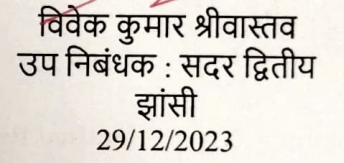 विवेक कुमार श्रीवास्तव
उप निबंधक : सदर द्वितीय
झांसी
29/12/2023